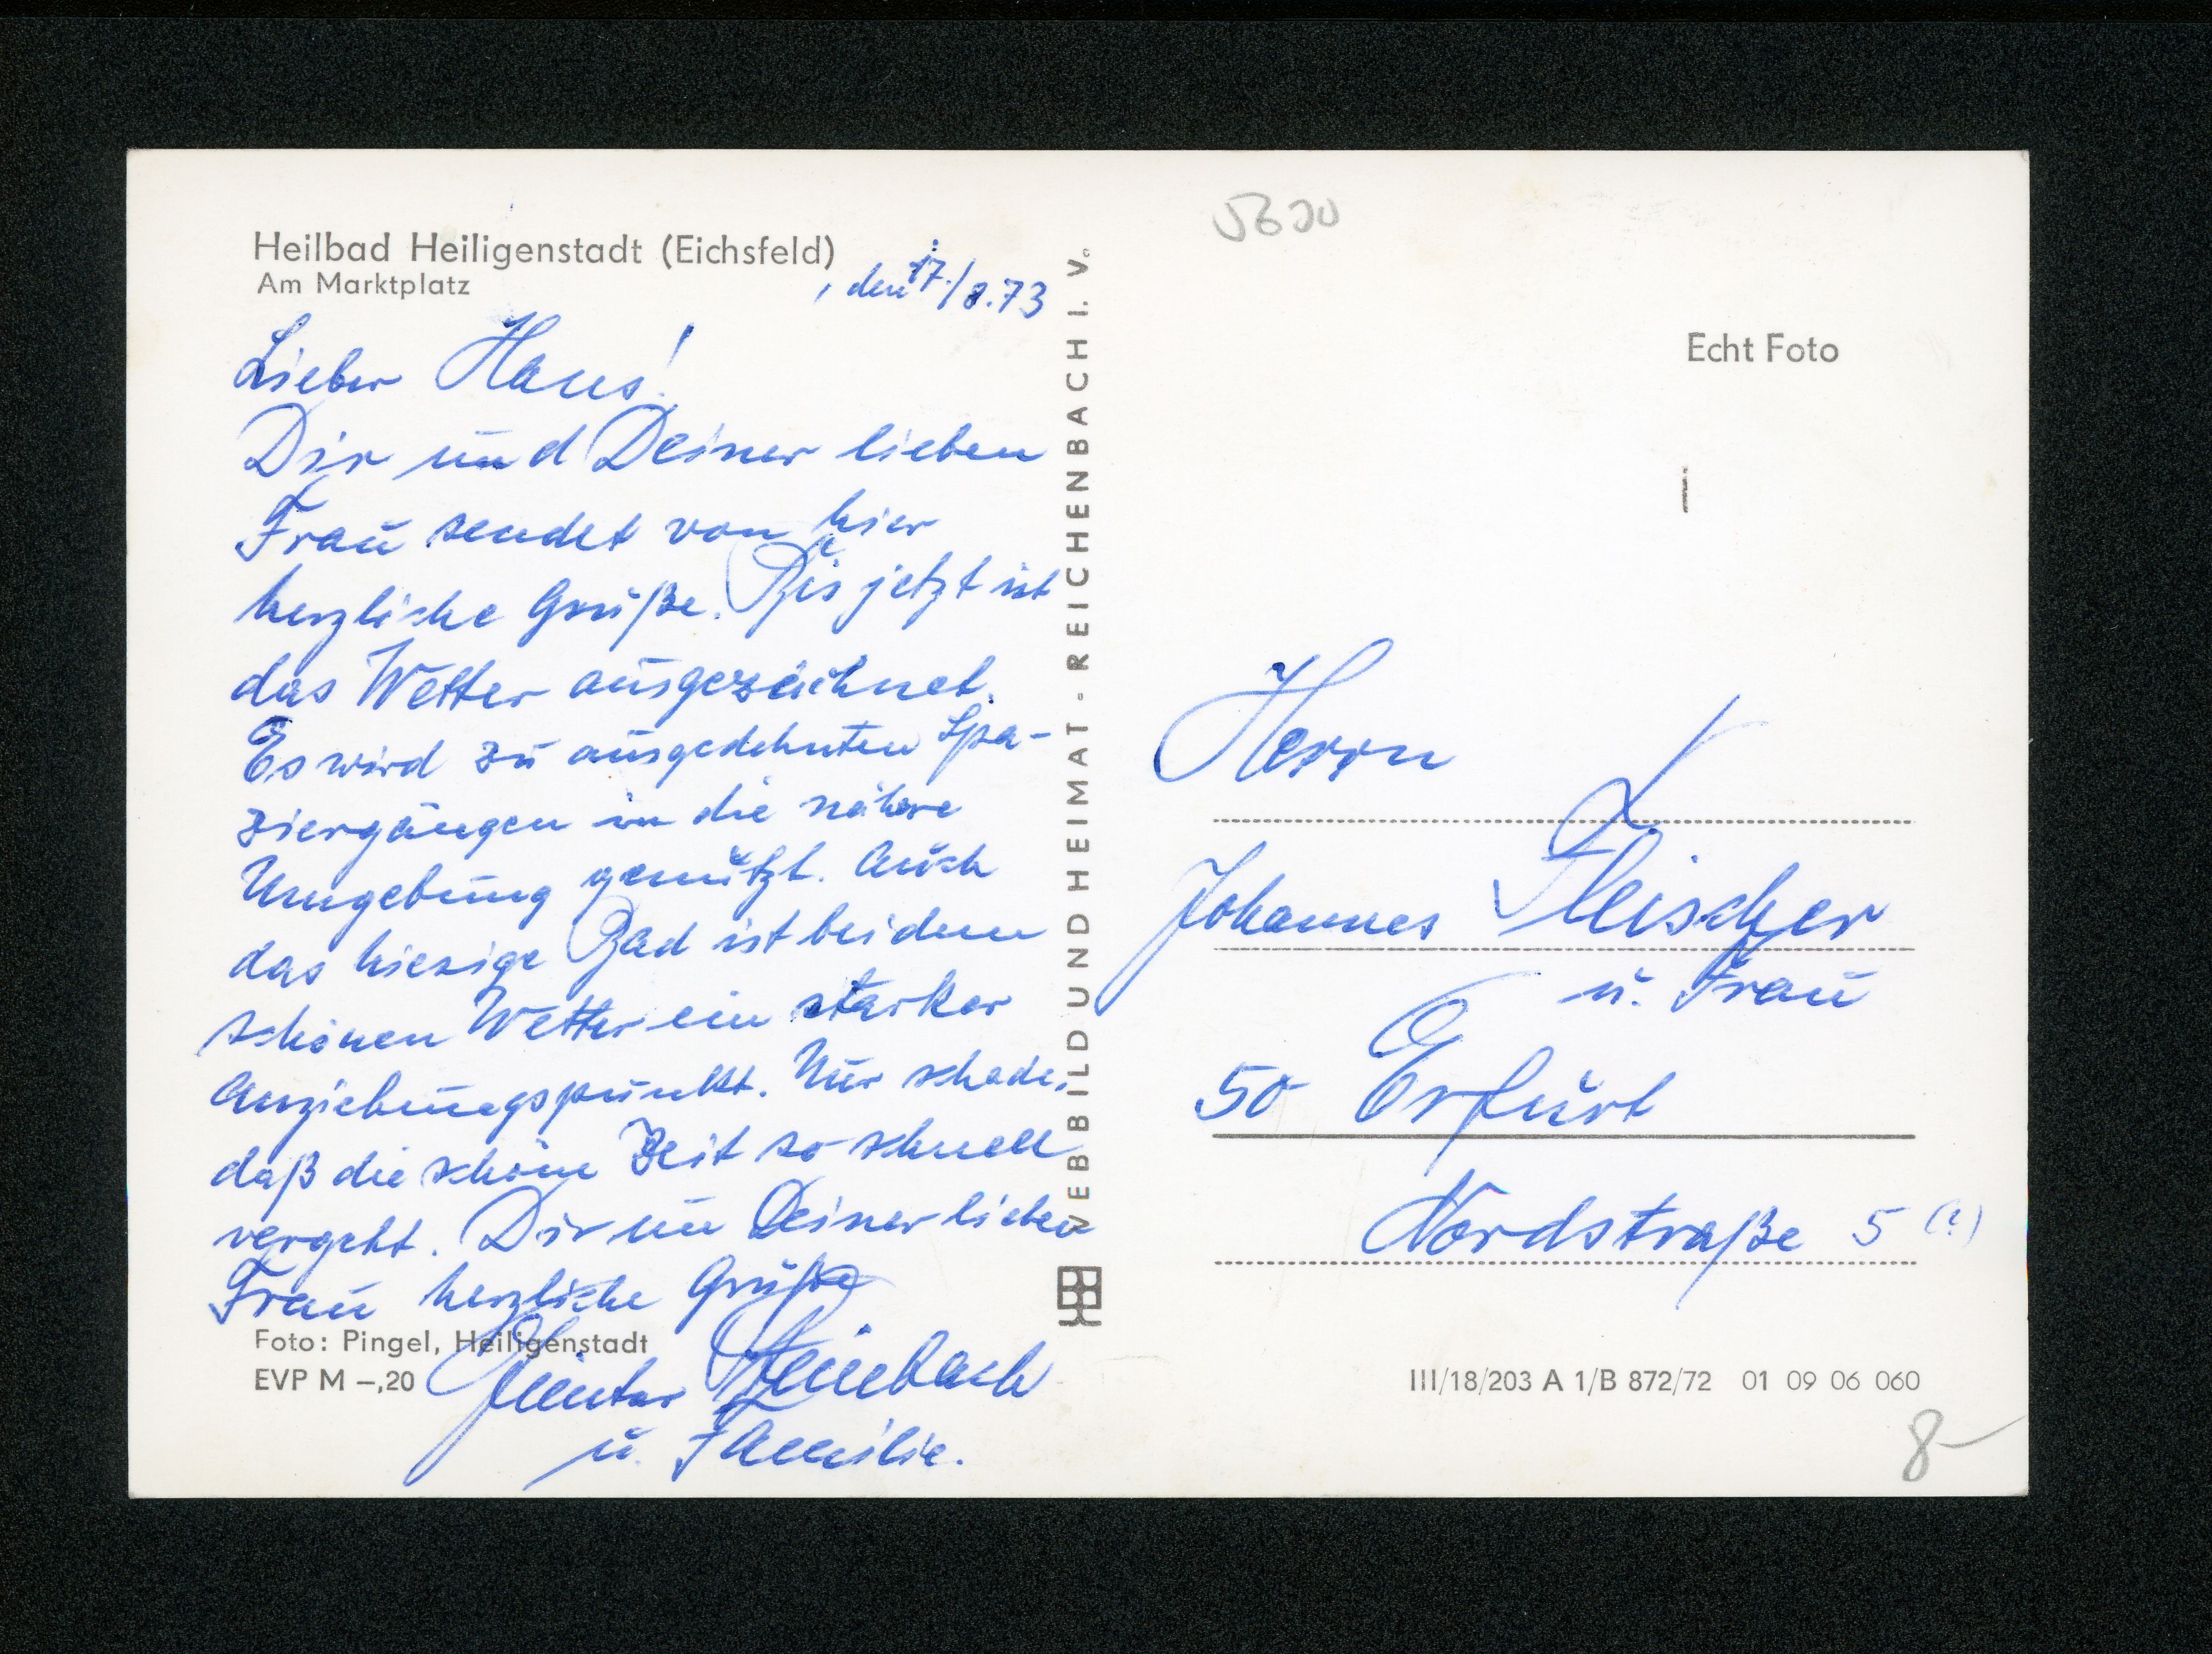 Heilbad Heiligenstadt (Eichsfeld)
Am Marktplatz
, den 17./8.73
Lieber Hans!
Dir und Deiner lieben
Frau sendet von hier
herzliche Grüße. Bis jetzt ist
das Wetter ausgezeichnet.
Es wird zu ausgedehnten Spa-
ziergängen in die nähere
Umgebung genützt. Auch
das hiesige Bad ist bei dem
schönen Wetter ein starker
Anziehungspunkt. Nur schade,
daß die schöne Zeit so schnell
vergeht. Dir un Deiner lieben
Frau herzliche Grüße
Foto: Pingel, Heiligenstadt
EVP M –,20
Günter
u. Familie.
VEB BILD UND HEIMAT - REICHENBACH I. V.
Echt Foto
Herrn
Johannes Fleischer
u. Frau
50 Erfurt
Nordstraße 5 (?)
III/18/203 A 1/B 872/72 01 09 06 060
8-